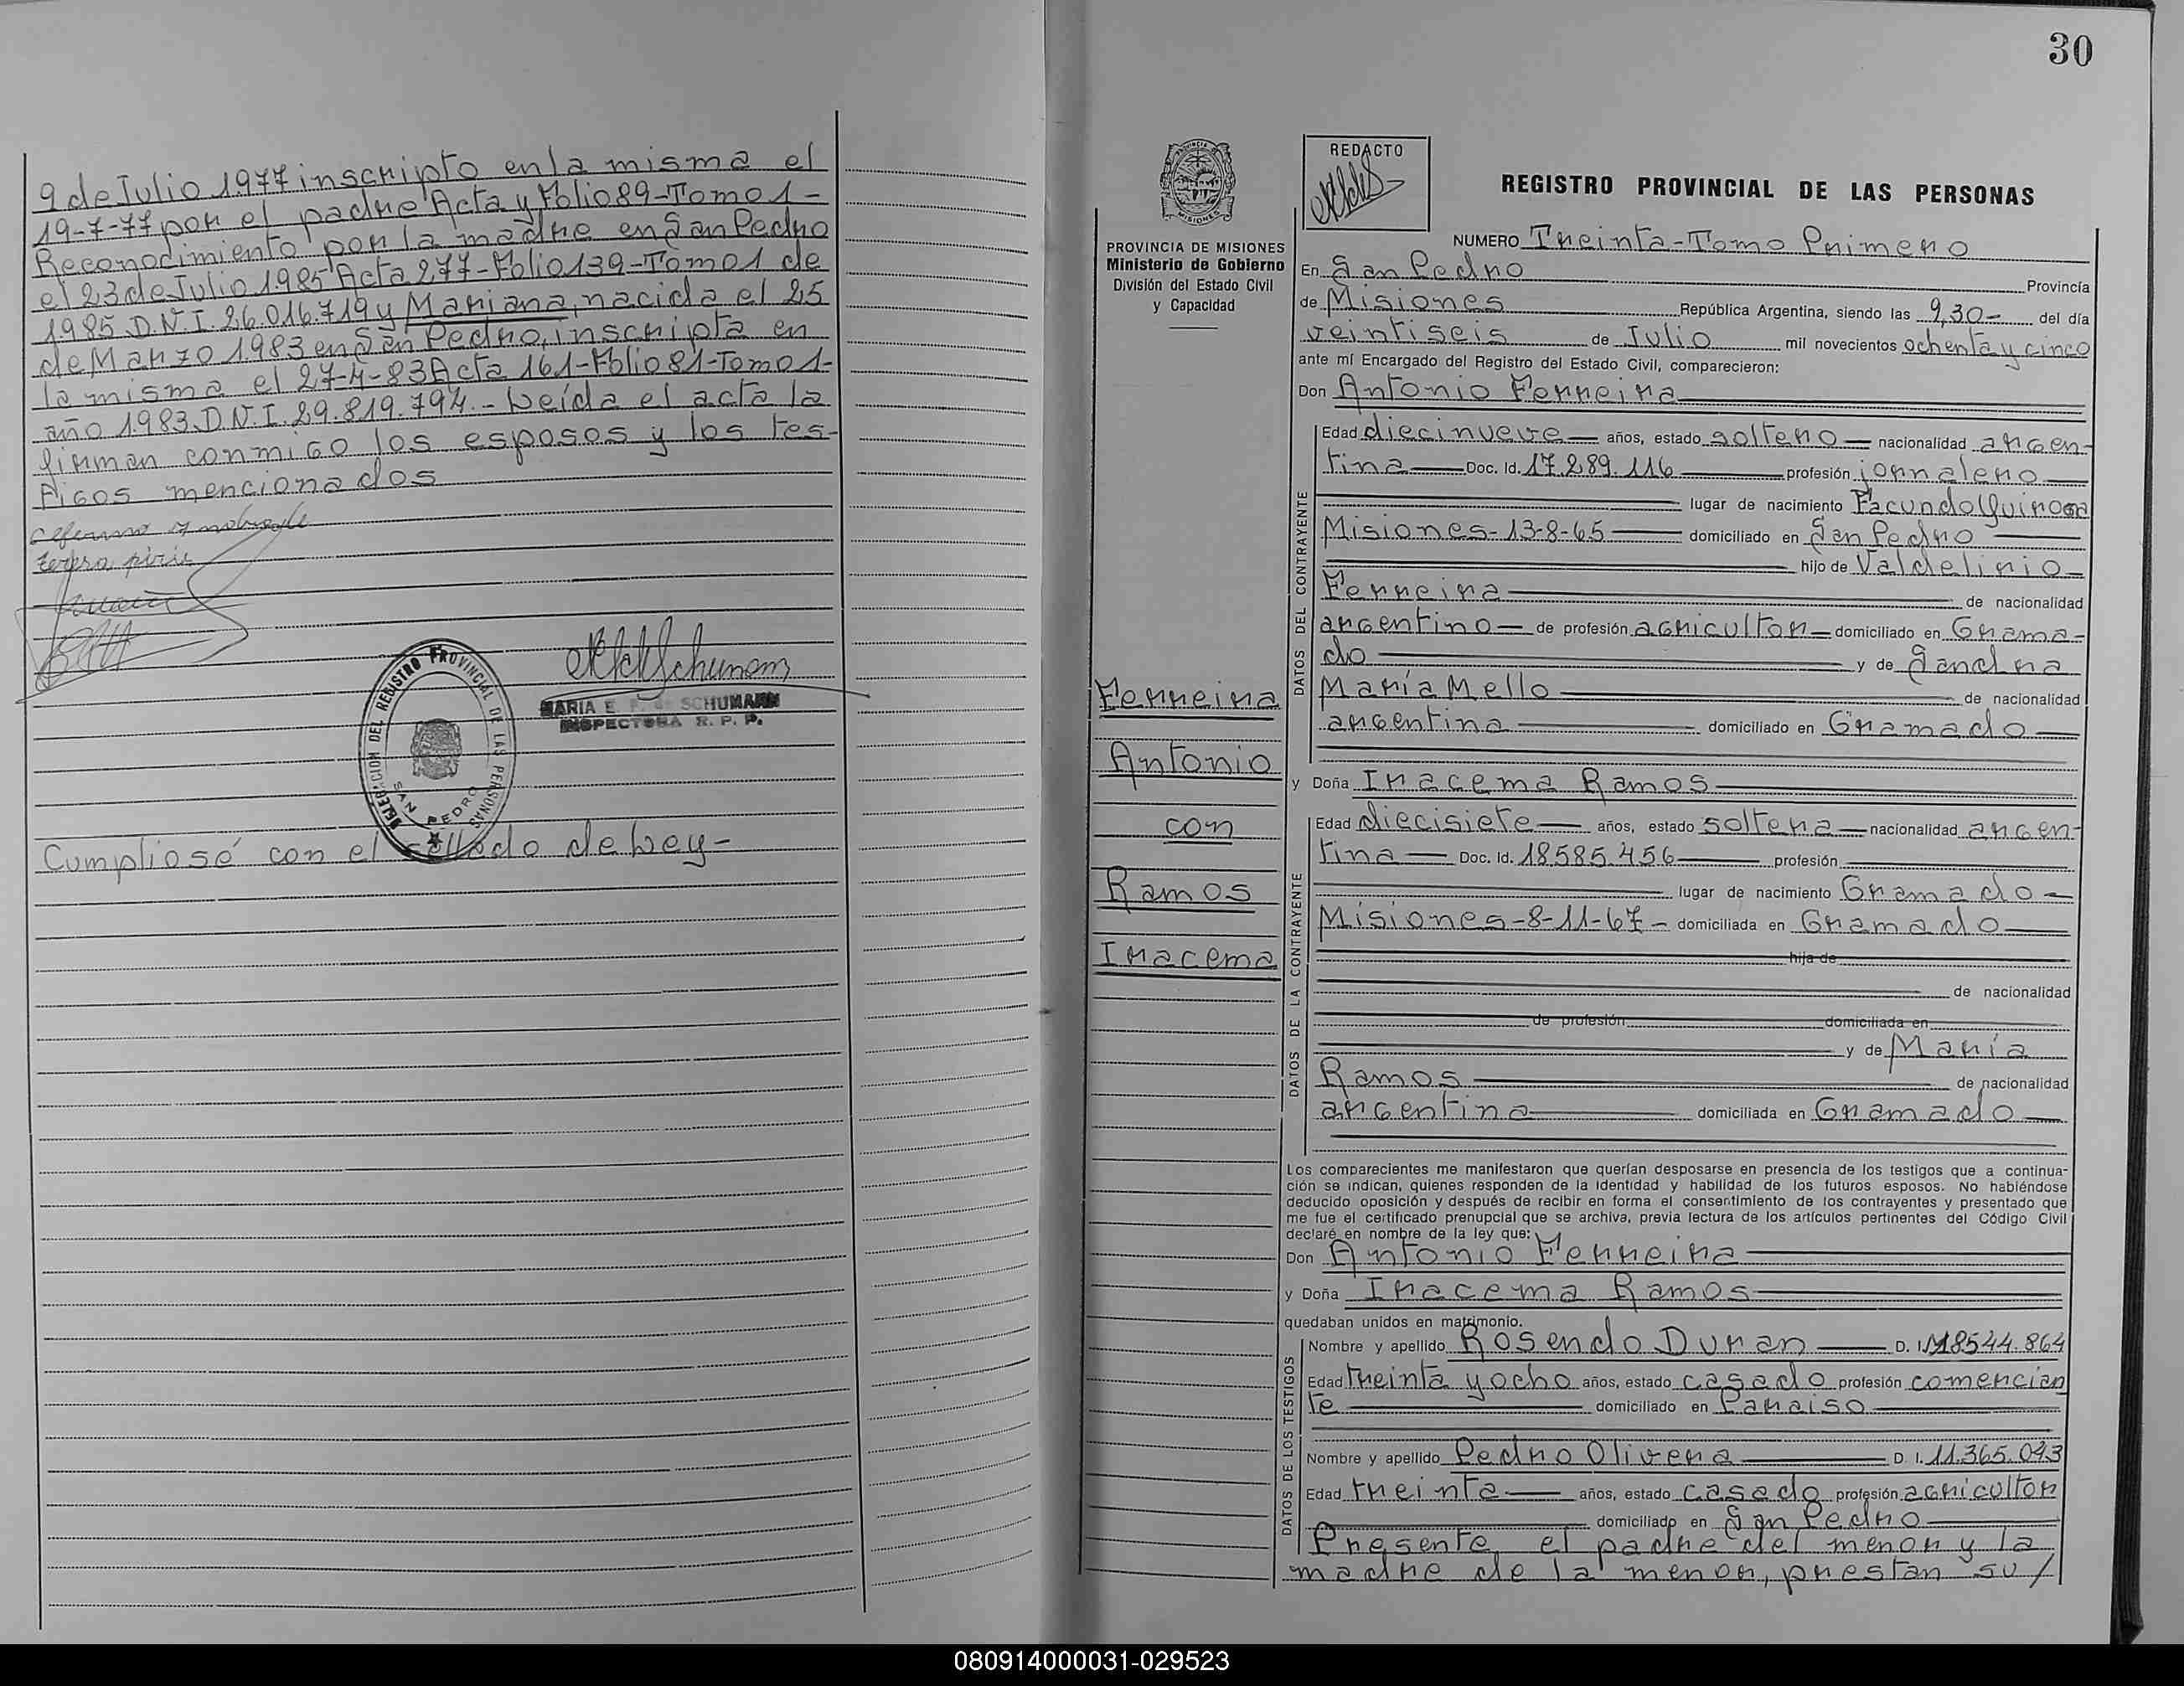 9 de Julio 1977 inscripto en la misma el
19-7-77 por el padre Acta y Folio 89-Tomo 1-
Reconocimiento por la madre en San Pedro
el 23 de Julio 1985 Acta 277-Folio 139-Tomo 1 de
1985 D.N.I. 26.016.719 y Mariana, nacida el 25
de Marzo 1983 en San Pedro, inscripta en
la misma el 27-4-83 Acta 161-Folio 81-Tomo 1-
año 1983 D.N.I. 29.819.794.- Leída el acta la
firman conmigo los esposos y los tes-
tigos mencionados
MARIA E. SCHUMANN
INSPECTORA R. P. P.
DELEGACION DEL REGISTRO PROVINCIAL DE LAS PERSONAS
SAN PEDRO
Cumpliose con el sellado de Ley-
30
REDACTO
PROVINCIA DE MISIONES
Ministerio de Gobierno
División del Estado Civil
y Capacidad
Ferreira
Antonio
con
Ramos
Iracema
REGISTRO PROVINCIAL DE LAS PERSONAS
NUMERO Treinta-Tomo Primero
En San Pedro Provincia
de Misiones República Argentina, siendo las 9,30- del día
veintiseis de Julio mil novecientos ochenta y cinco
ante mí Encargado del Registro del Estado Civil, comparecieron:
Don Antonio Ferreira
DATOS DEL CONTRAYENTE
Edad diecinueve años, estado soltero nacionalidad argen-
tina Doc. Id. 17.289.116 profesión jornalero
lugar de nacimiento Facundo Quiroga
Misiones-13-8-65 domiciliado en San Pedro
hijo de Valdelirio
Ferreira de nacionalidad
argentino de profesión agricultor domiciliado en Grama-
do y de Sandra
María Mello de nacionalidad
argentina domiciliado en Gramado
y Doña Iracema Ramos
DATOS DE LA CONTRAYENTE
Edad diecisiete años, estado soltera nacionalidad argen-
tina Doc. Id. 18.585.456 profesión
lugar de nacimiento Gramado
Misiones-8-11-67- domiciliada en Gramado
hija de
de nacionalidad
de profesión domiciliada en
y de María
Ramos de nacionalidad
argentina domiciliada en Gramado
Los comparecientes me manifestaron que querían desposarse en presencia de los testigos que a continua-
ción se indican, quienes responden de la identidad y habilidad de los futuros esposos. No habiéndose
deducido oposición y después de recibir en forma el consentimiento de los contrayentes y presentado que
me fue el certificado prenupcial que se archiva, previa lectura de los artículos pertinentes del Código Civil
declaré en nombre de la ley que:
Don Antonio Ferreira
y Doña Iracema Ramos
quedaban unidos en matrimonio.
DATOS DE LOS TESTIGOS
Nombre y apellido Rosendo Duran D. I. M8544.864
Edad treinta y ocho años, estado casado profesión comercian
te domiciliado en Paraiso
Nombre y apellido Pedro Olivera D. I. 11.365.093
Edad treinta años, estado casado profesión agricultor
domiciliado en San Pedro
Presente el padre del menor y la
madre de la menor, prestan su /
080914000031-029523